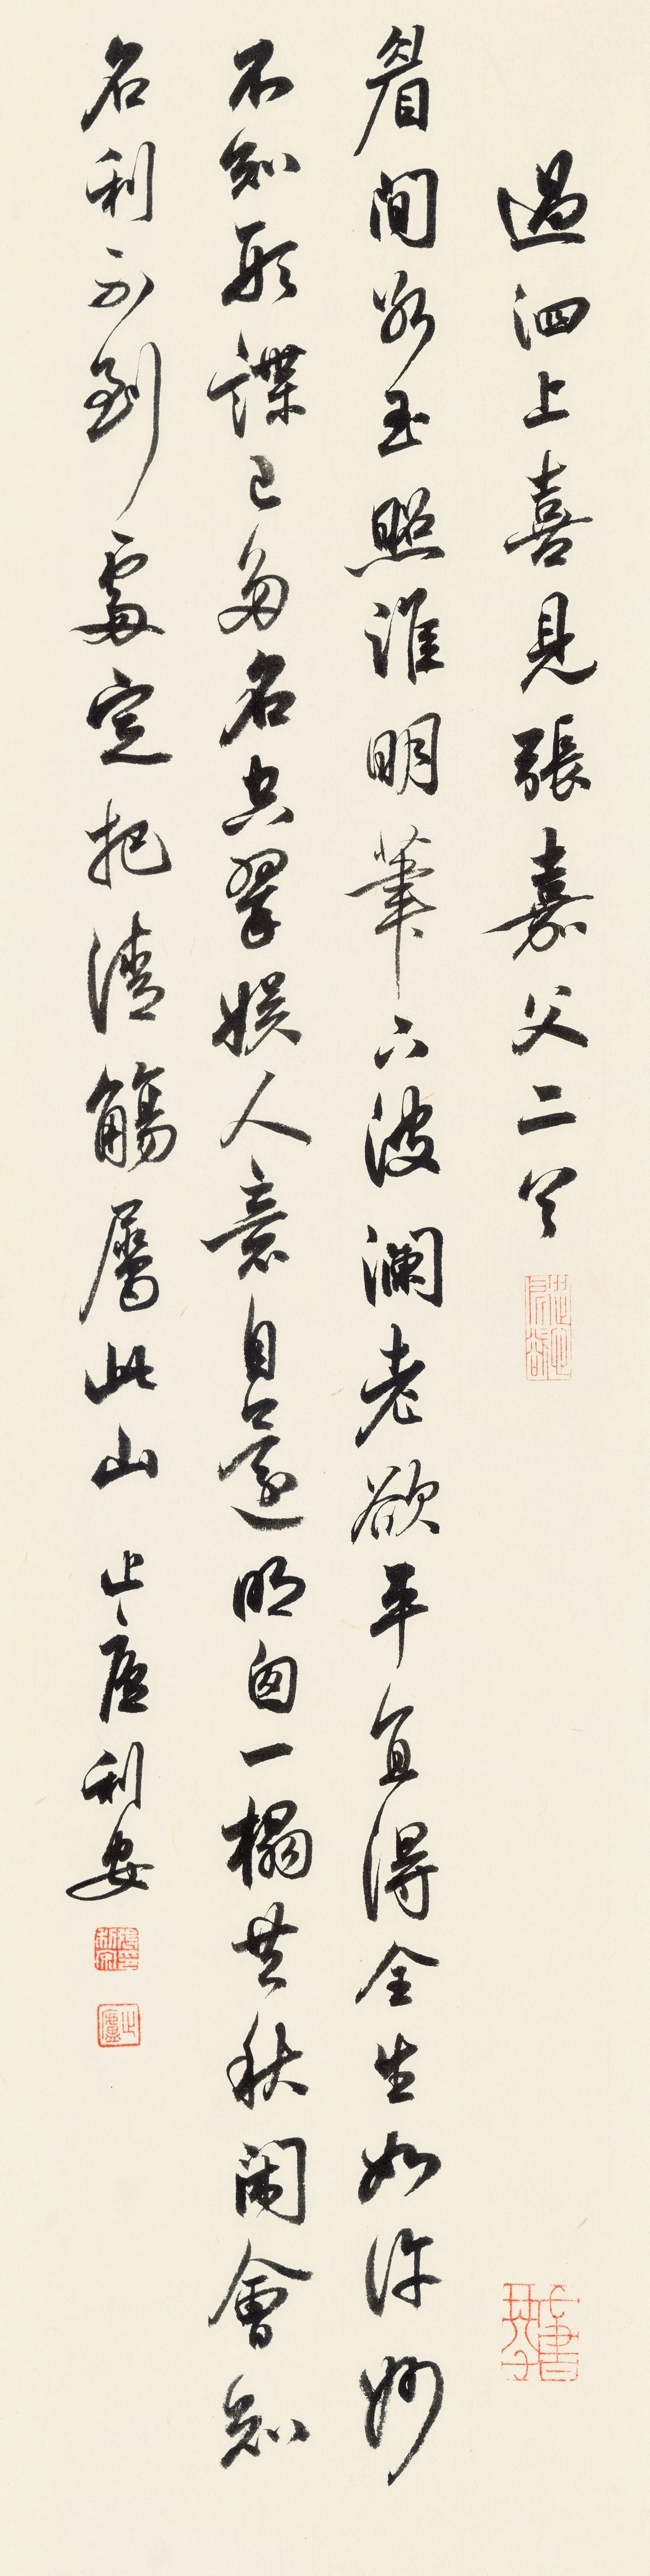 過泗上喜見張嘉父二首
眉間冰玉照淮明筆下波瀾老欲平直得全生如許妙
不知形諜已多名空翠娛人意自還明囪一榻共秋閑會知
名利不到處定把清觴屬此山 止廬利安
止廬